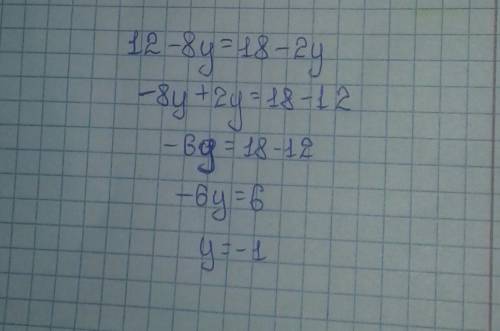 12-8y=18-2y
-8y+2y=18-12
-6y=18-12
-6y=6
y=-1